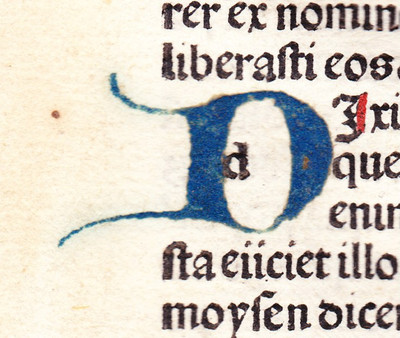 rer ex nomin
liberaſti eos
D d Ixi
que
enim
ſta eiiciet illo
moyſen dicer